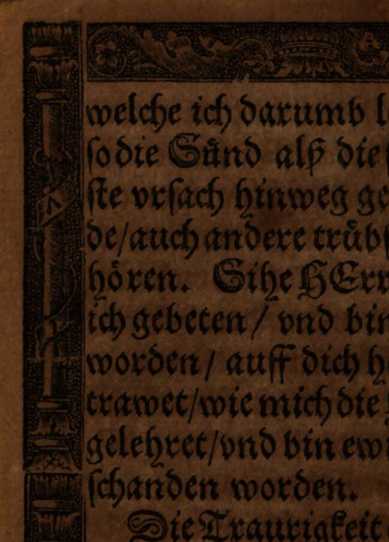 welche ich darumb
so die Sünd alß die
ste vrsach hinweg
de/auch andere
hören. Sihe HErr
ich gebeten/ vnd bin
worden/ auff dich
trawet/wie mich die
gelehret/vnd bin
schanden worden.
Die Traurigkeit